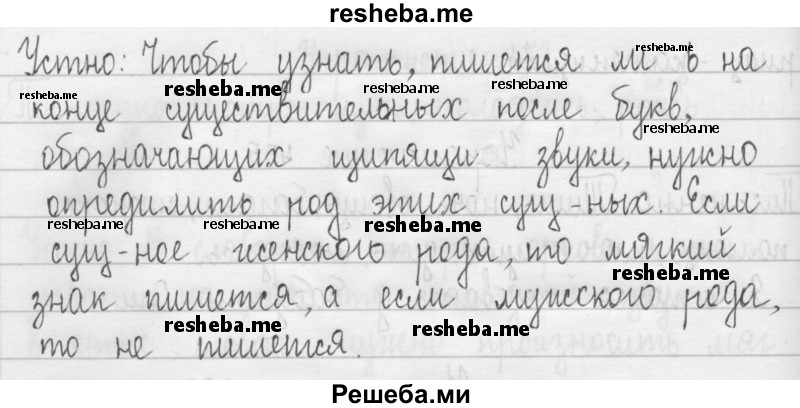 resheba.me
Устно: Чтобы узнать, пишется ли ь на
resheba.me
resheba.me resheba.me resheba.me
конце существительных после букв,
resheba.me
обозначающих шипящи звуки, нужно
определить род этих сущ-ных. Если
resheba.me resheba.me resheba.me
сущ-ное женского рода, то мягкий
resheba.me
знак пишется, а если мужского рода,
resheba.me resheba.me
то не пишется.
Решеба.ми